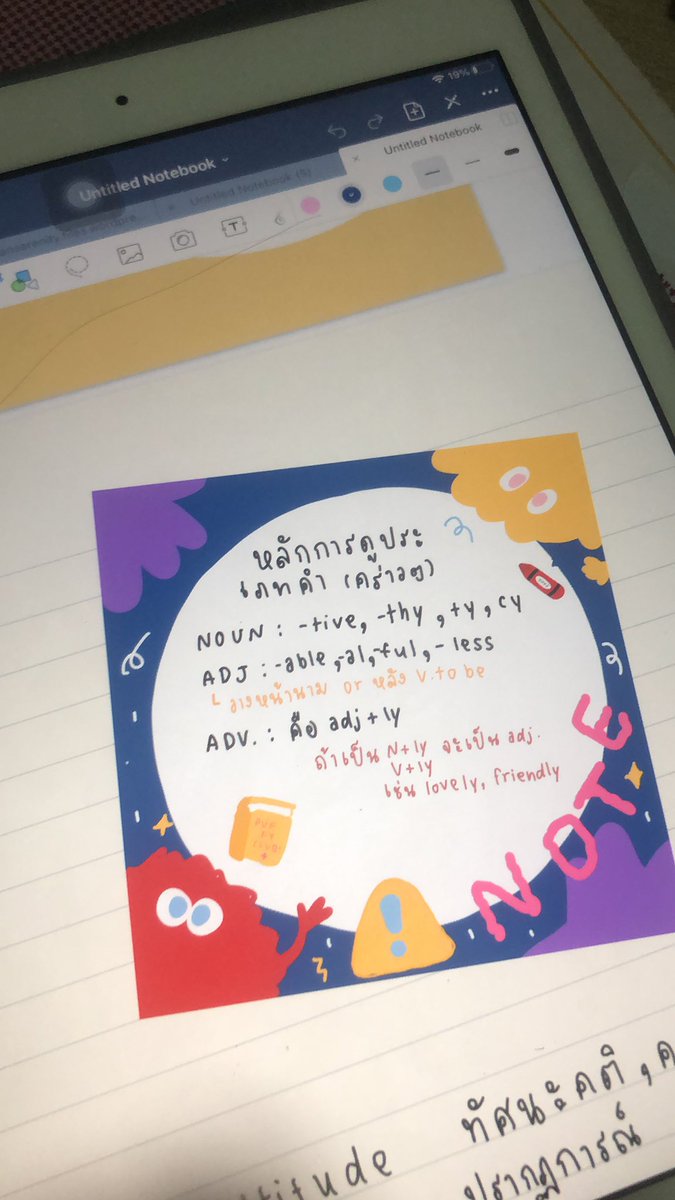 19%
Untitled Notebook
Untitled Notebook (5)
Untitled Notebook
T
หลักการดูประ
เภทคำ (คร่าวๆ)
NOUN : -tive, -thy , ty , cy
ADJ : -able ,-al,-ful, - less
วางหน้านาม or หลัง V.to be
ADV. : คือ adj + ly
ถ้าเป็น N+ly จะเป็น adj.
V+ly
เช่น lovely, friendly
NOTE
ทัศนะคติ , ค
ปรากฏการณ์